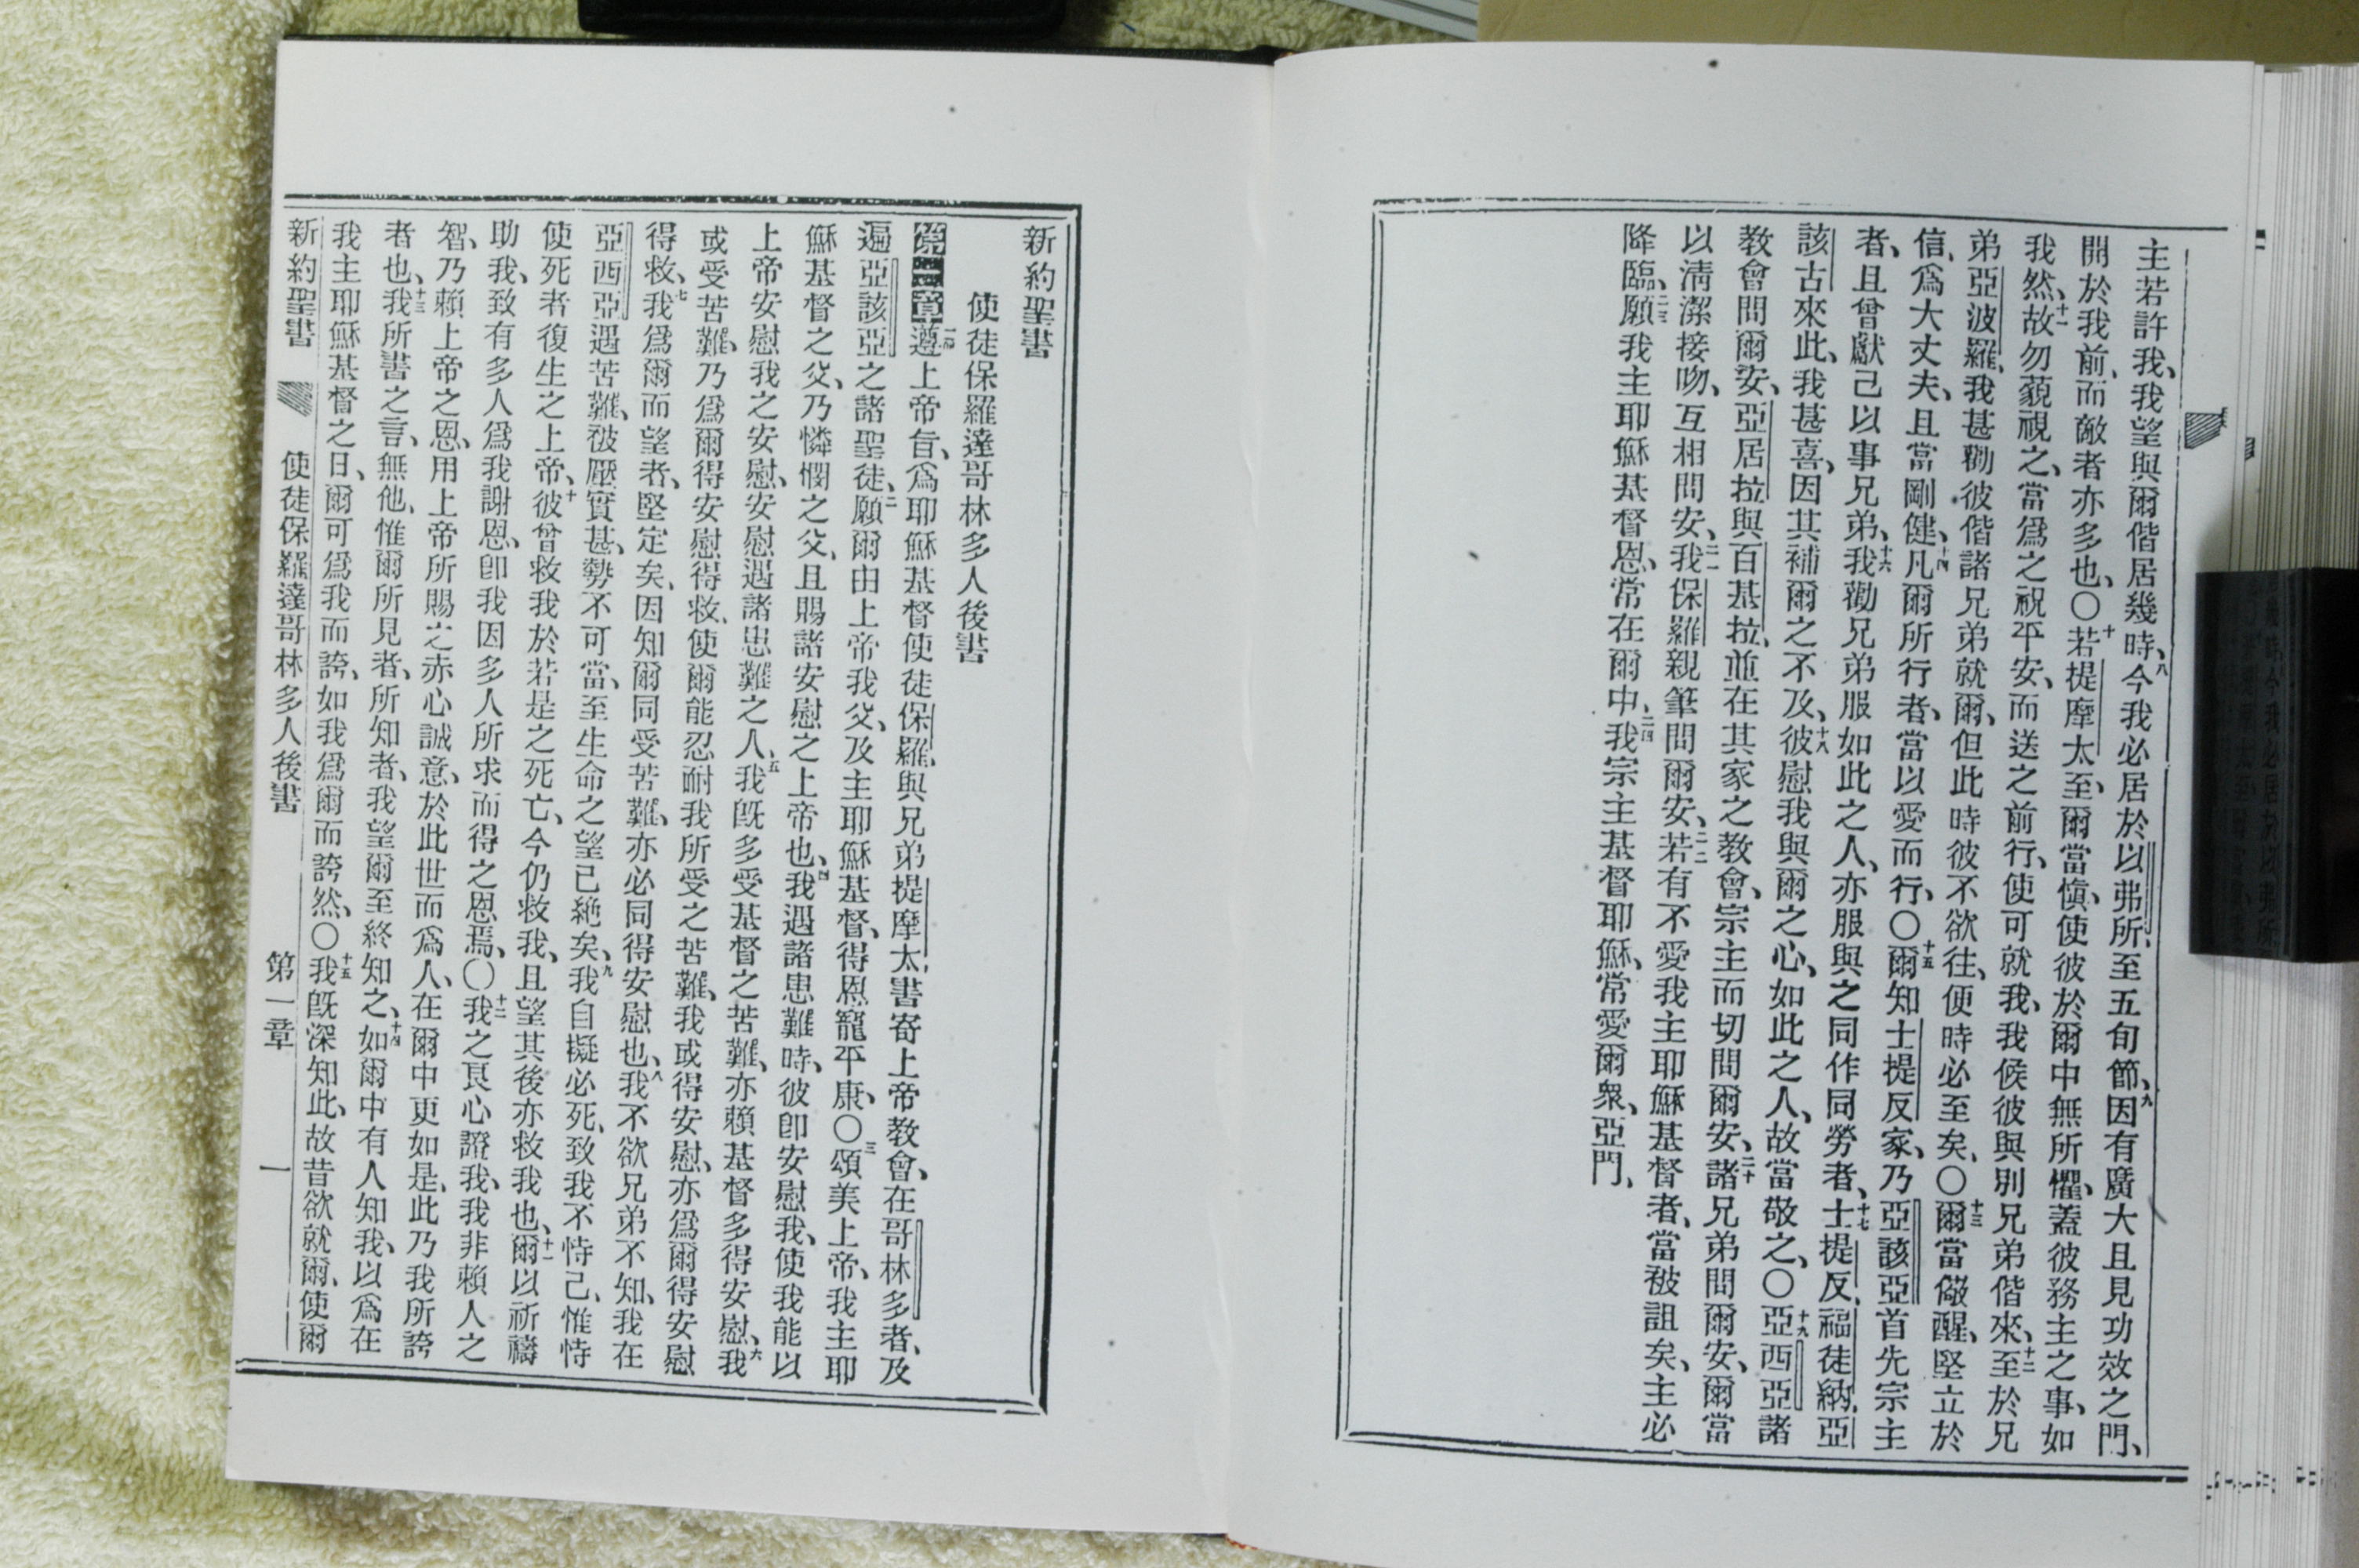 主若許我、我望與爾偕居幾時、八今我必居於以弗所、至五旬節、九因有廣大且見功效之門、
開於我前、而敵者亦多也、〇十若提摩太至、爾當愼、使彼於爾中無所懼、蓋彼務主之事、如
我然、十一故勿藐視之、當爲之祝平安、而送之前行、使可就我、我候彼與別兄弟偕來、十二至於兄
弟亞波羅、我甚勸彼偕諸兄弟就爾、但此時彼不欲往、便時必至矣、〇十三爾當儆醒、堅立於
信、爲大丈夫、且當剛健、十四凡爾所行者、當以愛而行、〇十五爾知士提反家、乃亞該亞首先宗主
者、且曾獻己以事兄弟、十六我勸兄弟服如此之人、亦服與之同作同勞者、十七士提反、福徒納、亞
該古來此、我甚喜、因其補爾之不及、十八彼慰我與爾之心、如此之人、故當敬之、〇十九亞西亞諸
教會問爾安、亞居拉與百基拉、並在其家之教會、宗主而切問爾安、二十諸兄弟問爾安、爾當
以淸潔接吻、互相問安、二一我保羅親筆問爾安、二二若有不愛我主耶穌基督者、當被詛矣、主必
降臨、二三願我主耶穌基督恩、常在爾中、二四我宗主基督耶穌、常愛爾衆、亞門、
新約聖書
使徒保羅達哥林多人後書
第一章一遵上帝旨、爲耶穌基督使徒保羅、與兄弟提摩太、書寄上帝教會、在哥林多者、及
遍亞該亞之諸聖徒、二願爾由上帝我父、及主耶穌基督、得恩寵平康、〇三頌美上帝、我主耶
穌基督之父、乃憐憫之父、且賜諸安慰之上帝也、四我遇諸患難時、彼卽安慰我、使我能以
上帝安慰我之安慰、安慰遇諸患難之人、五我旣多受基督之苦難、亦賴基督多得安慰、六我
或受苦難、乃爲爾得安慰得救、使爾能忍耐我所受之苦難、我或得安慰、亦爲爾得安慰
得救、七我爲爾而望者、堅定矣、因知爾同受苦難、亦必同得安慰也、八我不欲兄弟不知、我在
亞西亞遇苦難、被壓實甚、勢不可當、至生命之望已絕矣、九我自擬必死、致我不恃己、惟恃
使死者復生之上帝、十彼曾救我於若是之死亡、今仍救我、且望其後亦救我也、十一爾以祈禱
助我、致有多人爲我謝恩、卽我因多人所求而得之恩焉、〇十二我之良心證我、我非賴人之
智、乃賴上帝之恩、用上帝所賜之赤心誠意、於此世而爲人、在爾中更如是、此乃我所誇
者也、十三我所書之言、無他、惟爾所見者、所知者、我望爾至終知之、十四如爾中有人知我、以爲在
我主耶穌基督之日、爾可爲我而誇、如我爲爾而誇然、〇十五我旣深知此、故昔欲就爾、使爾
新約聖書 使徒保羅達哥林多人後書 第一章 一